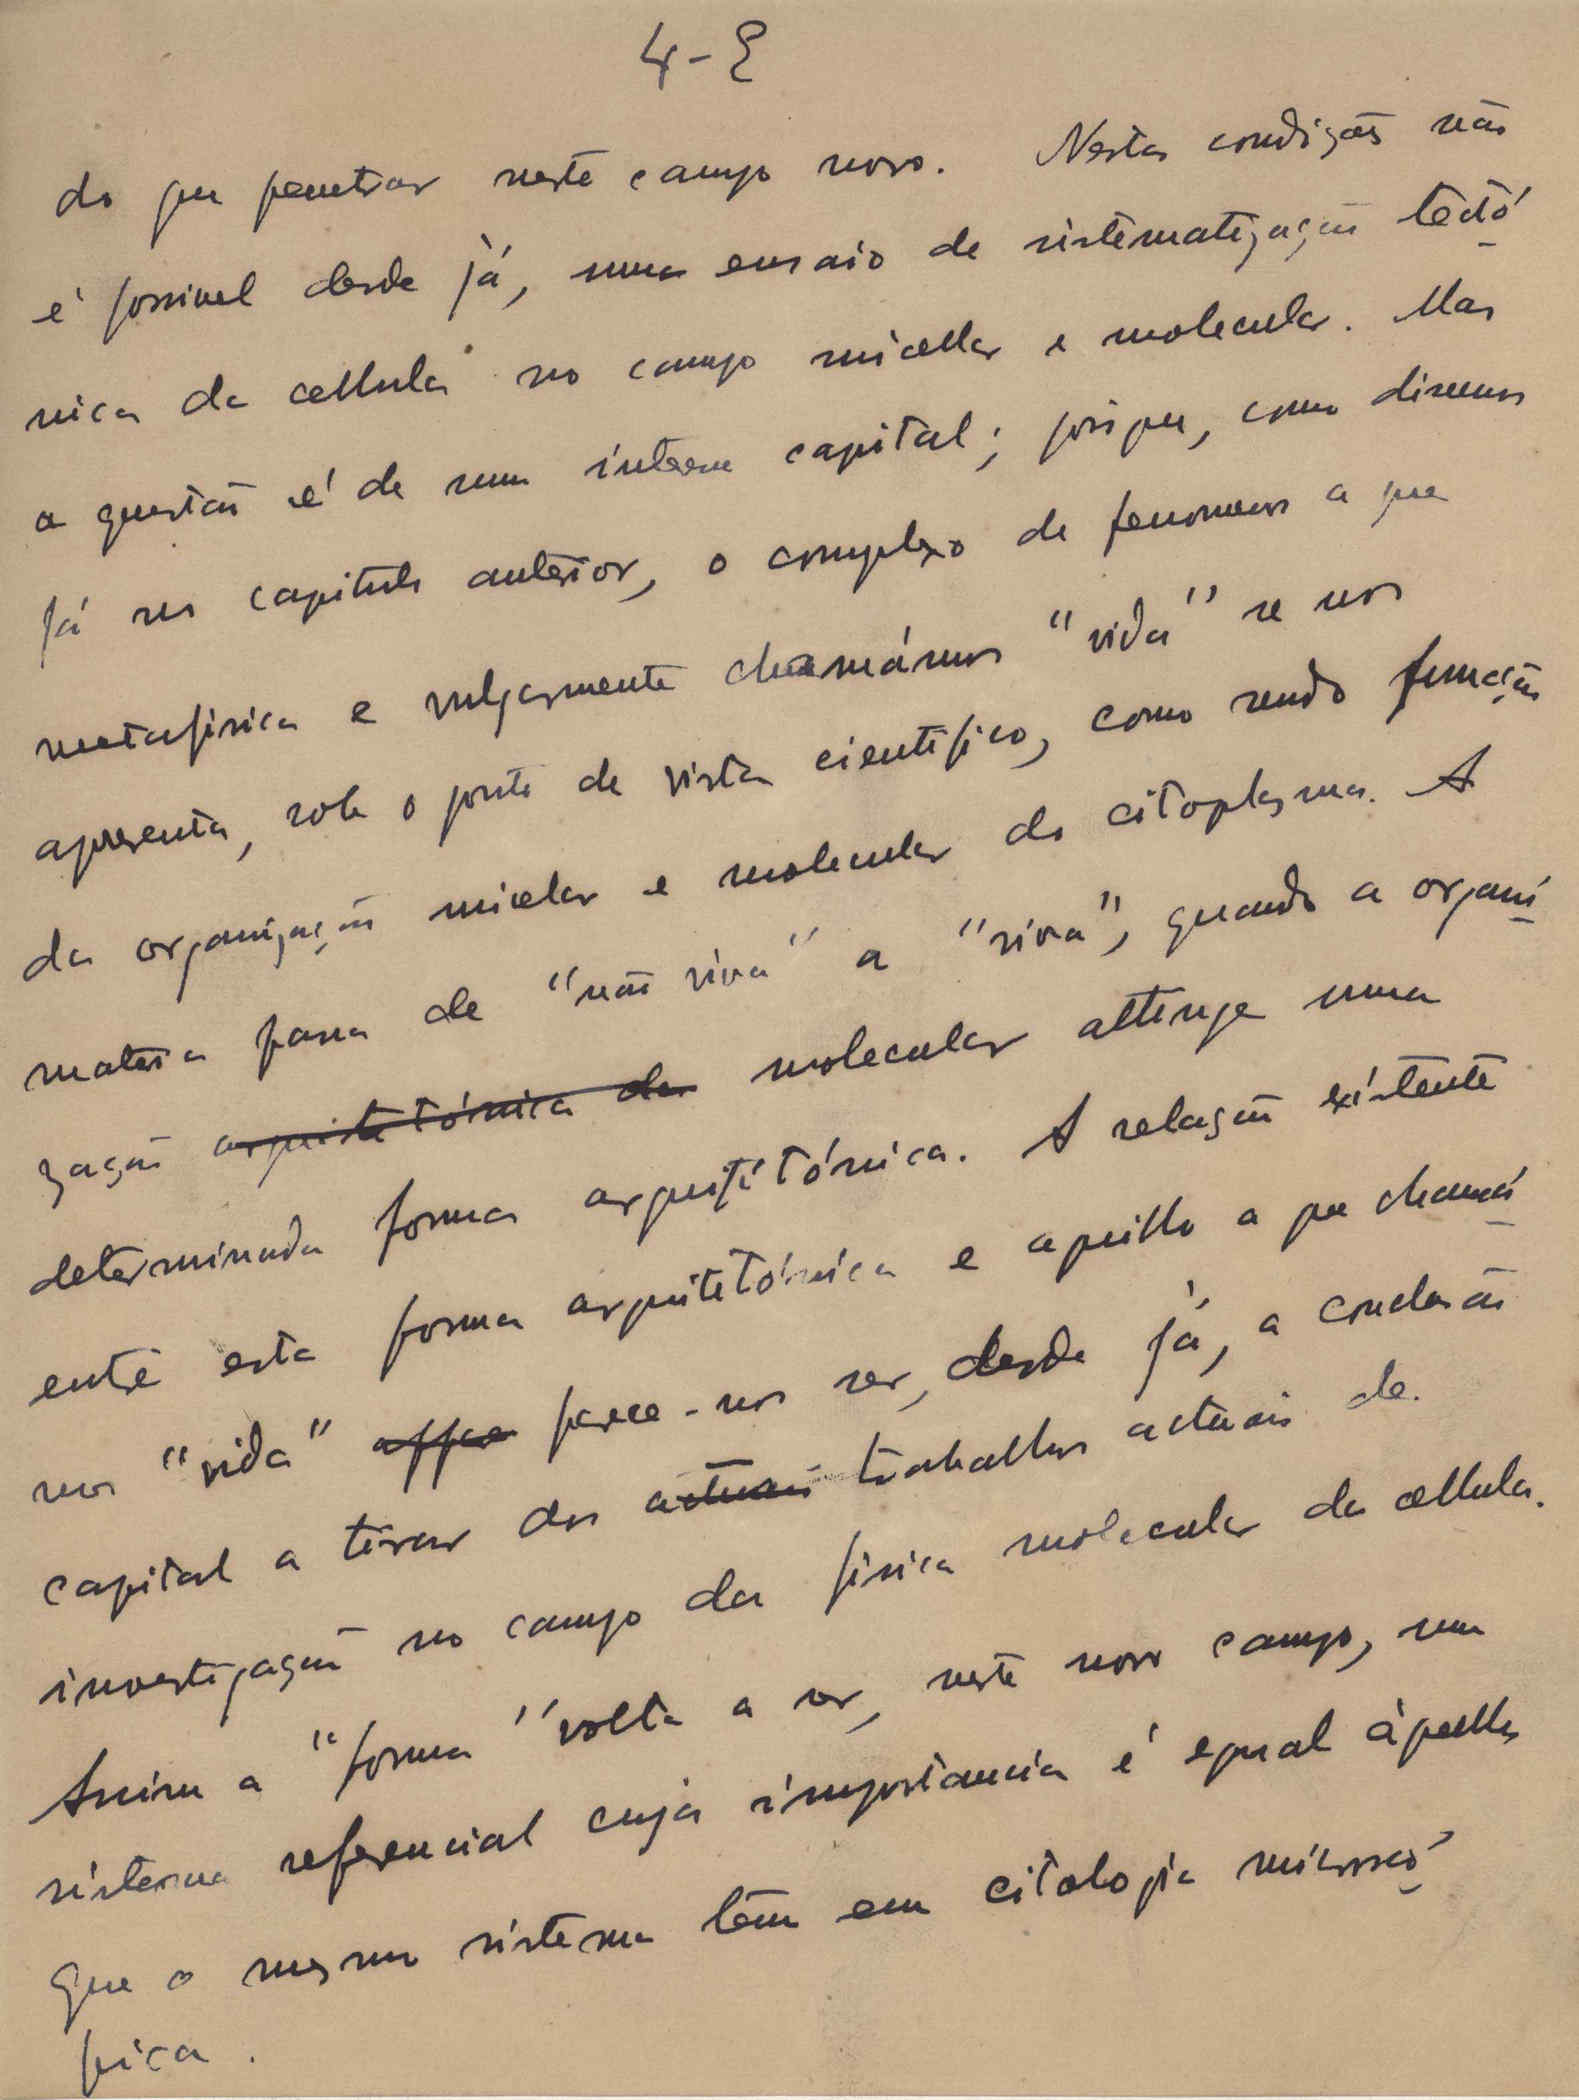 4-E
do que penetrar neste campo novo. Nestas condições não
é possivel desde já, um ensaio de sistematização tectó
nica da cellula no campo micellar e molecular. Mas
a questão é de um interesse capital; pois que, como dissemos
já no capitulo anterior, o complexo de fenomenos a que
metafisica e vulgarmente chamámos "vida" se nos
apresenta, sob o ponto de vista cientifico, como sendo funcção
da organização micelar e molecular do citoplasma. A
materia passa de "não viva" a "viva", quando a organi
zação arquitetónica da molecular attinge uma
determinada forma arquitetónica. A relação existente
entre esta forma arquitetónica e aquillo a que chamá
mos "vida" parece-nos ser, desde já, a conclusão
capital a tirar dos actuais trabalhos actuais de
investigação no campo da fisica molecular da cellula.
Assim a "forma" volta a ser, neste novo campo, um
sistema referencial cuja importancia é egual áquella
que o mesmo sistema têm em citologia microscó
pica.